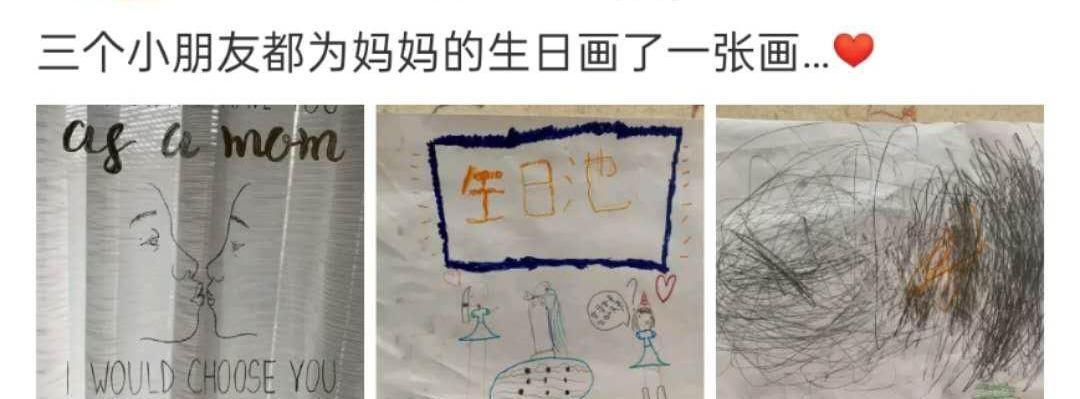 三个小朋友都为妈妈的生日画了一张画...❤️
as a mom
I WOULD CHOOSE YOU
生日池